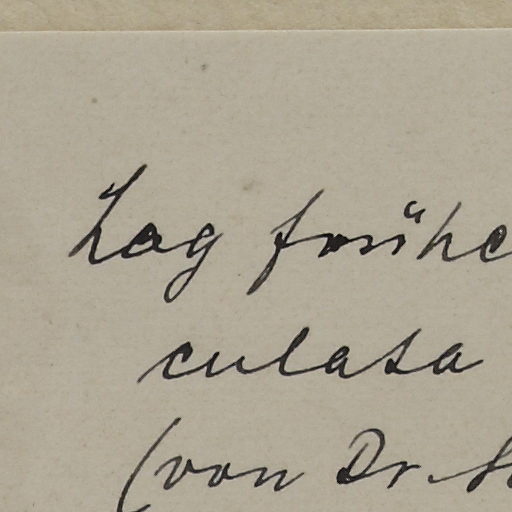 Lag frühe
culata
(von Dr.